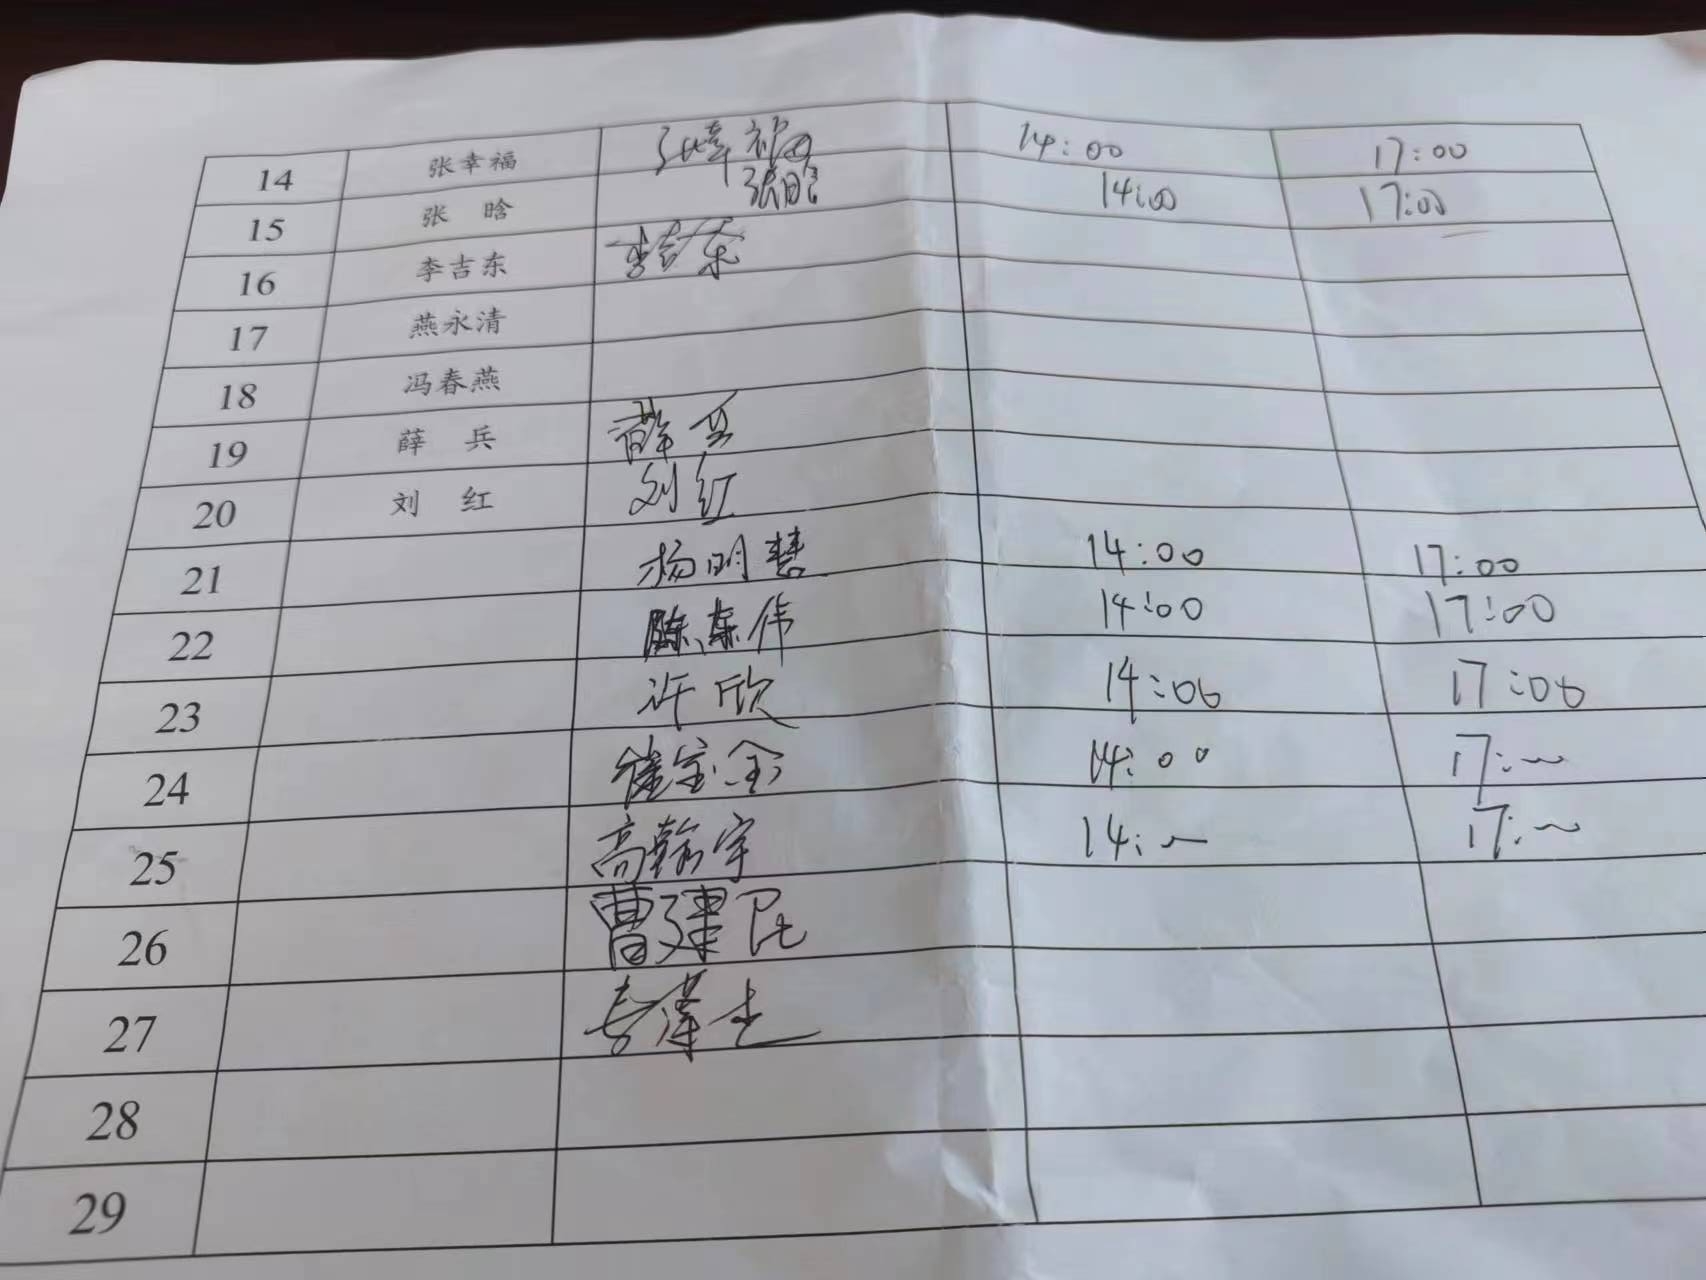 14 张幸福 张幸福 14:00 17:00
15 张 晗 张晗 14:00 17:00
16 李吉东 李吉东
17 燕永清
18 冯春燕
19 薛 兵 薛兵
20 刘 红 刘红
21 杨明慧 14:00 17:00
22 陈东伟 14:00 17:00
23 许欣 14:00 17:00
24 崔宝金 14:00 17:~
25 高翰宇 14:~ 17:~
26 曹建民
27
28
29